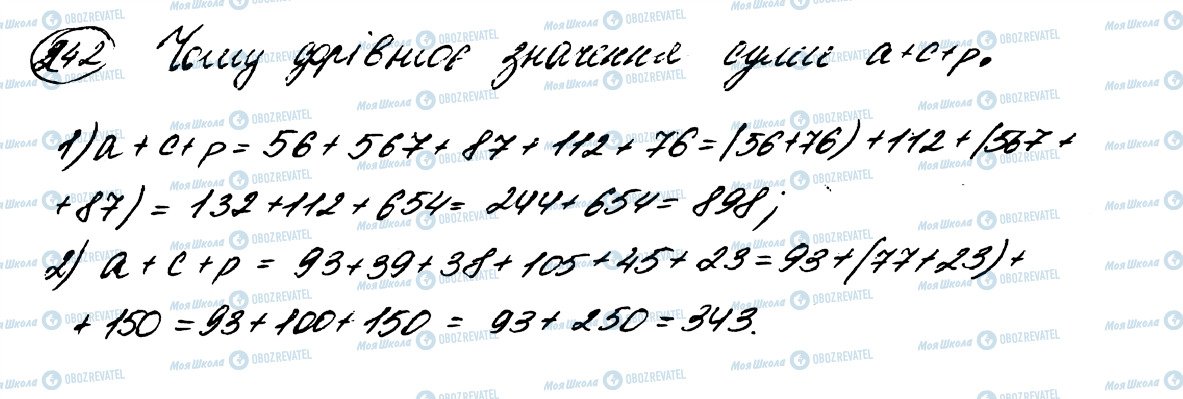 242 Чому дорівнює значення суми a+c+p.
1) a + c + p = 56 + 567 + 87 + 112 + 76 = (56+76) + 112 + (567 +
+ 87) = 132 + 112 + 654 = 244 + 654 = 898;
2) a + c + p = 93 + 39 + 38 + 105 + 45 + 23 = 93 + (77 + 23) +
+ 150 = 93 + 100 + 150 = 93 + 250 = 343.
Моя Школа OBOZREVATEL